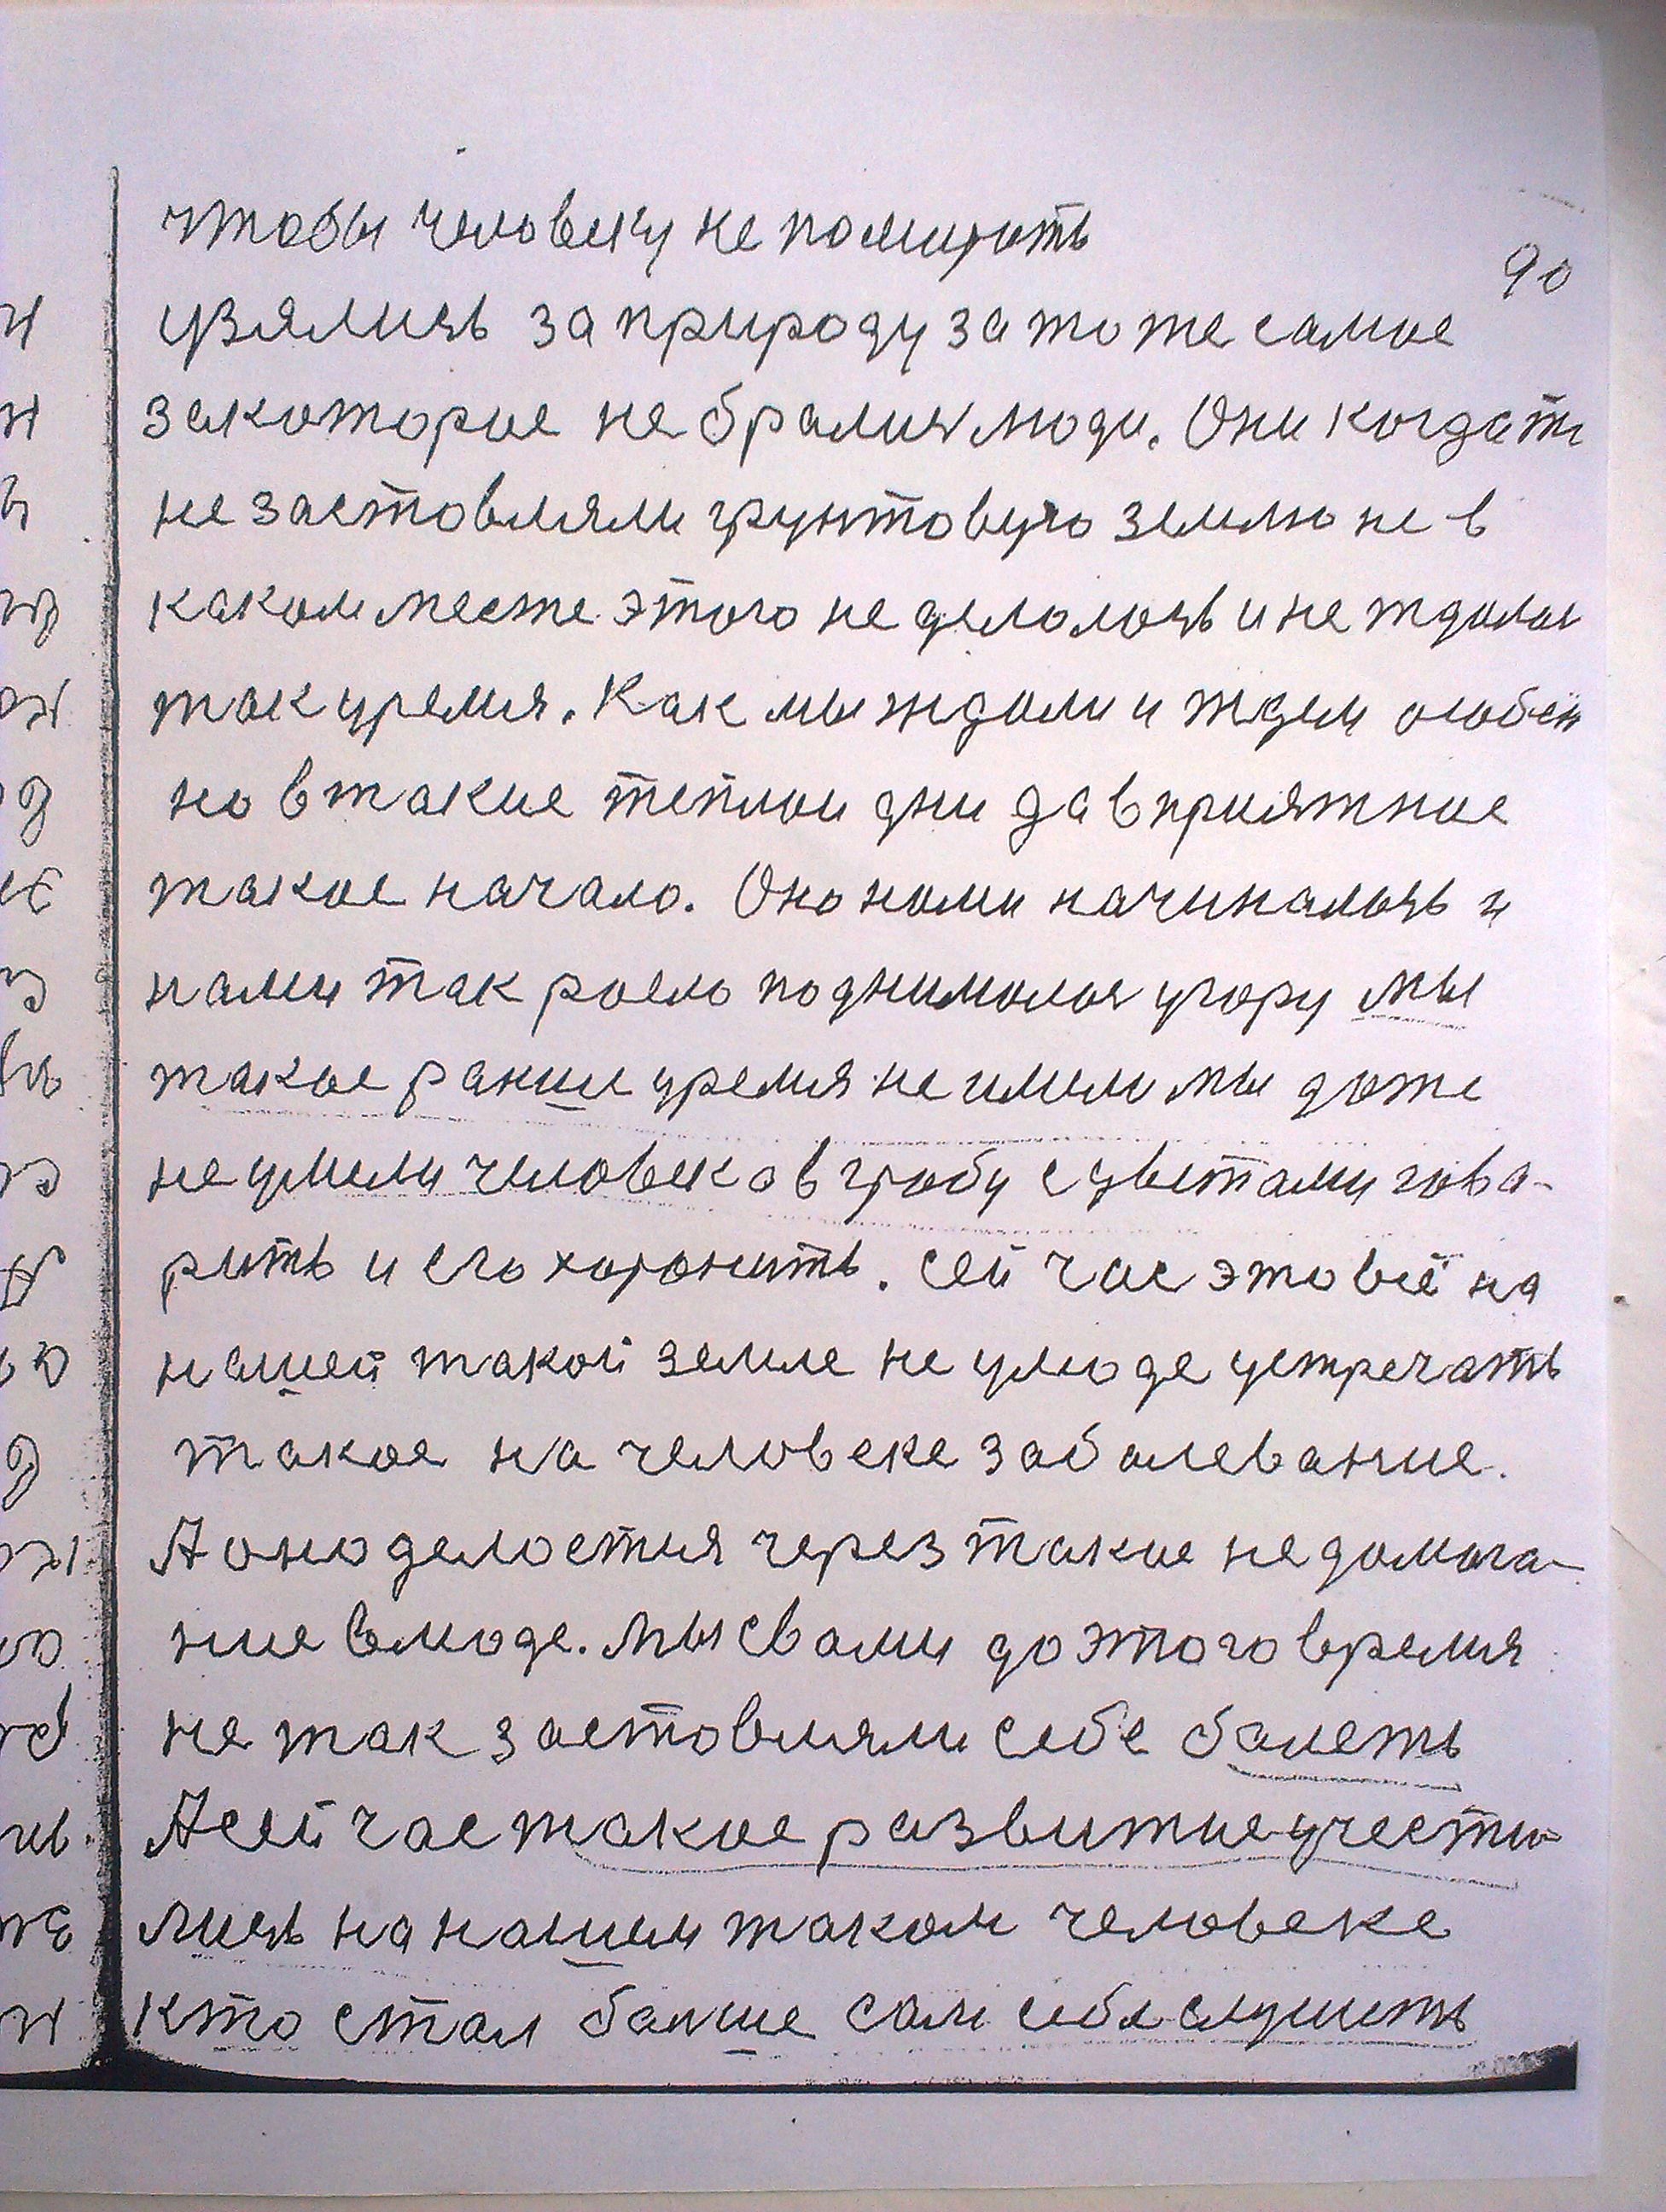 чтобы человеку не помирать
90
узялись за природу за то же самое
закоторые не бралися люди. Они когдато
не заставляли грунтовую землю не в
каком месте этого не делолось и не ждалося
так уремя. Как мы ждали и ждем особен
но в такие теплои дни да в приятное
такое начало. Оно нами начиналось и
нами так росло поднималося угору мы
такое ранши уремя не имели мы даже
не умели человека в гробу с цветами гова-
рить и его хоронить. Сей час это всё на
нашей такой земле не у люде устречать
такое на человеке заболевание.
А оно делается через такие не домога-
ние в люде. Мы свами до этого время
не так заставляли себе балеть
А сей час такое развитие участи
лись на нашем таком человеке
кто стал балше сам себя слушить